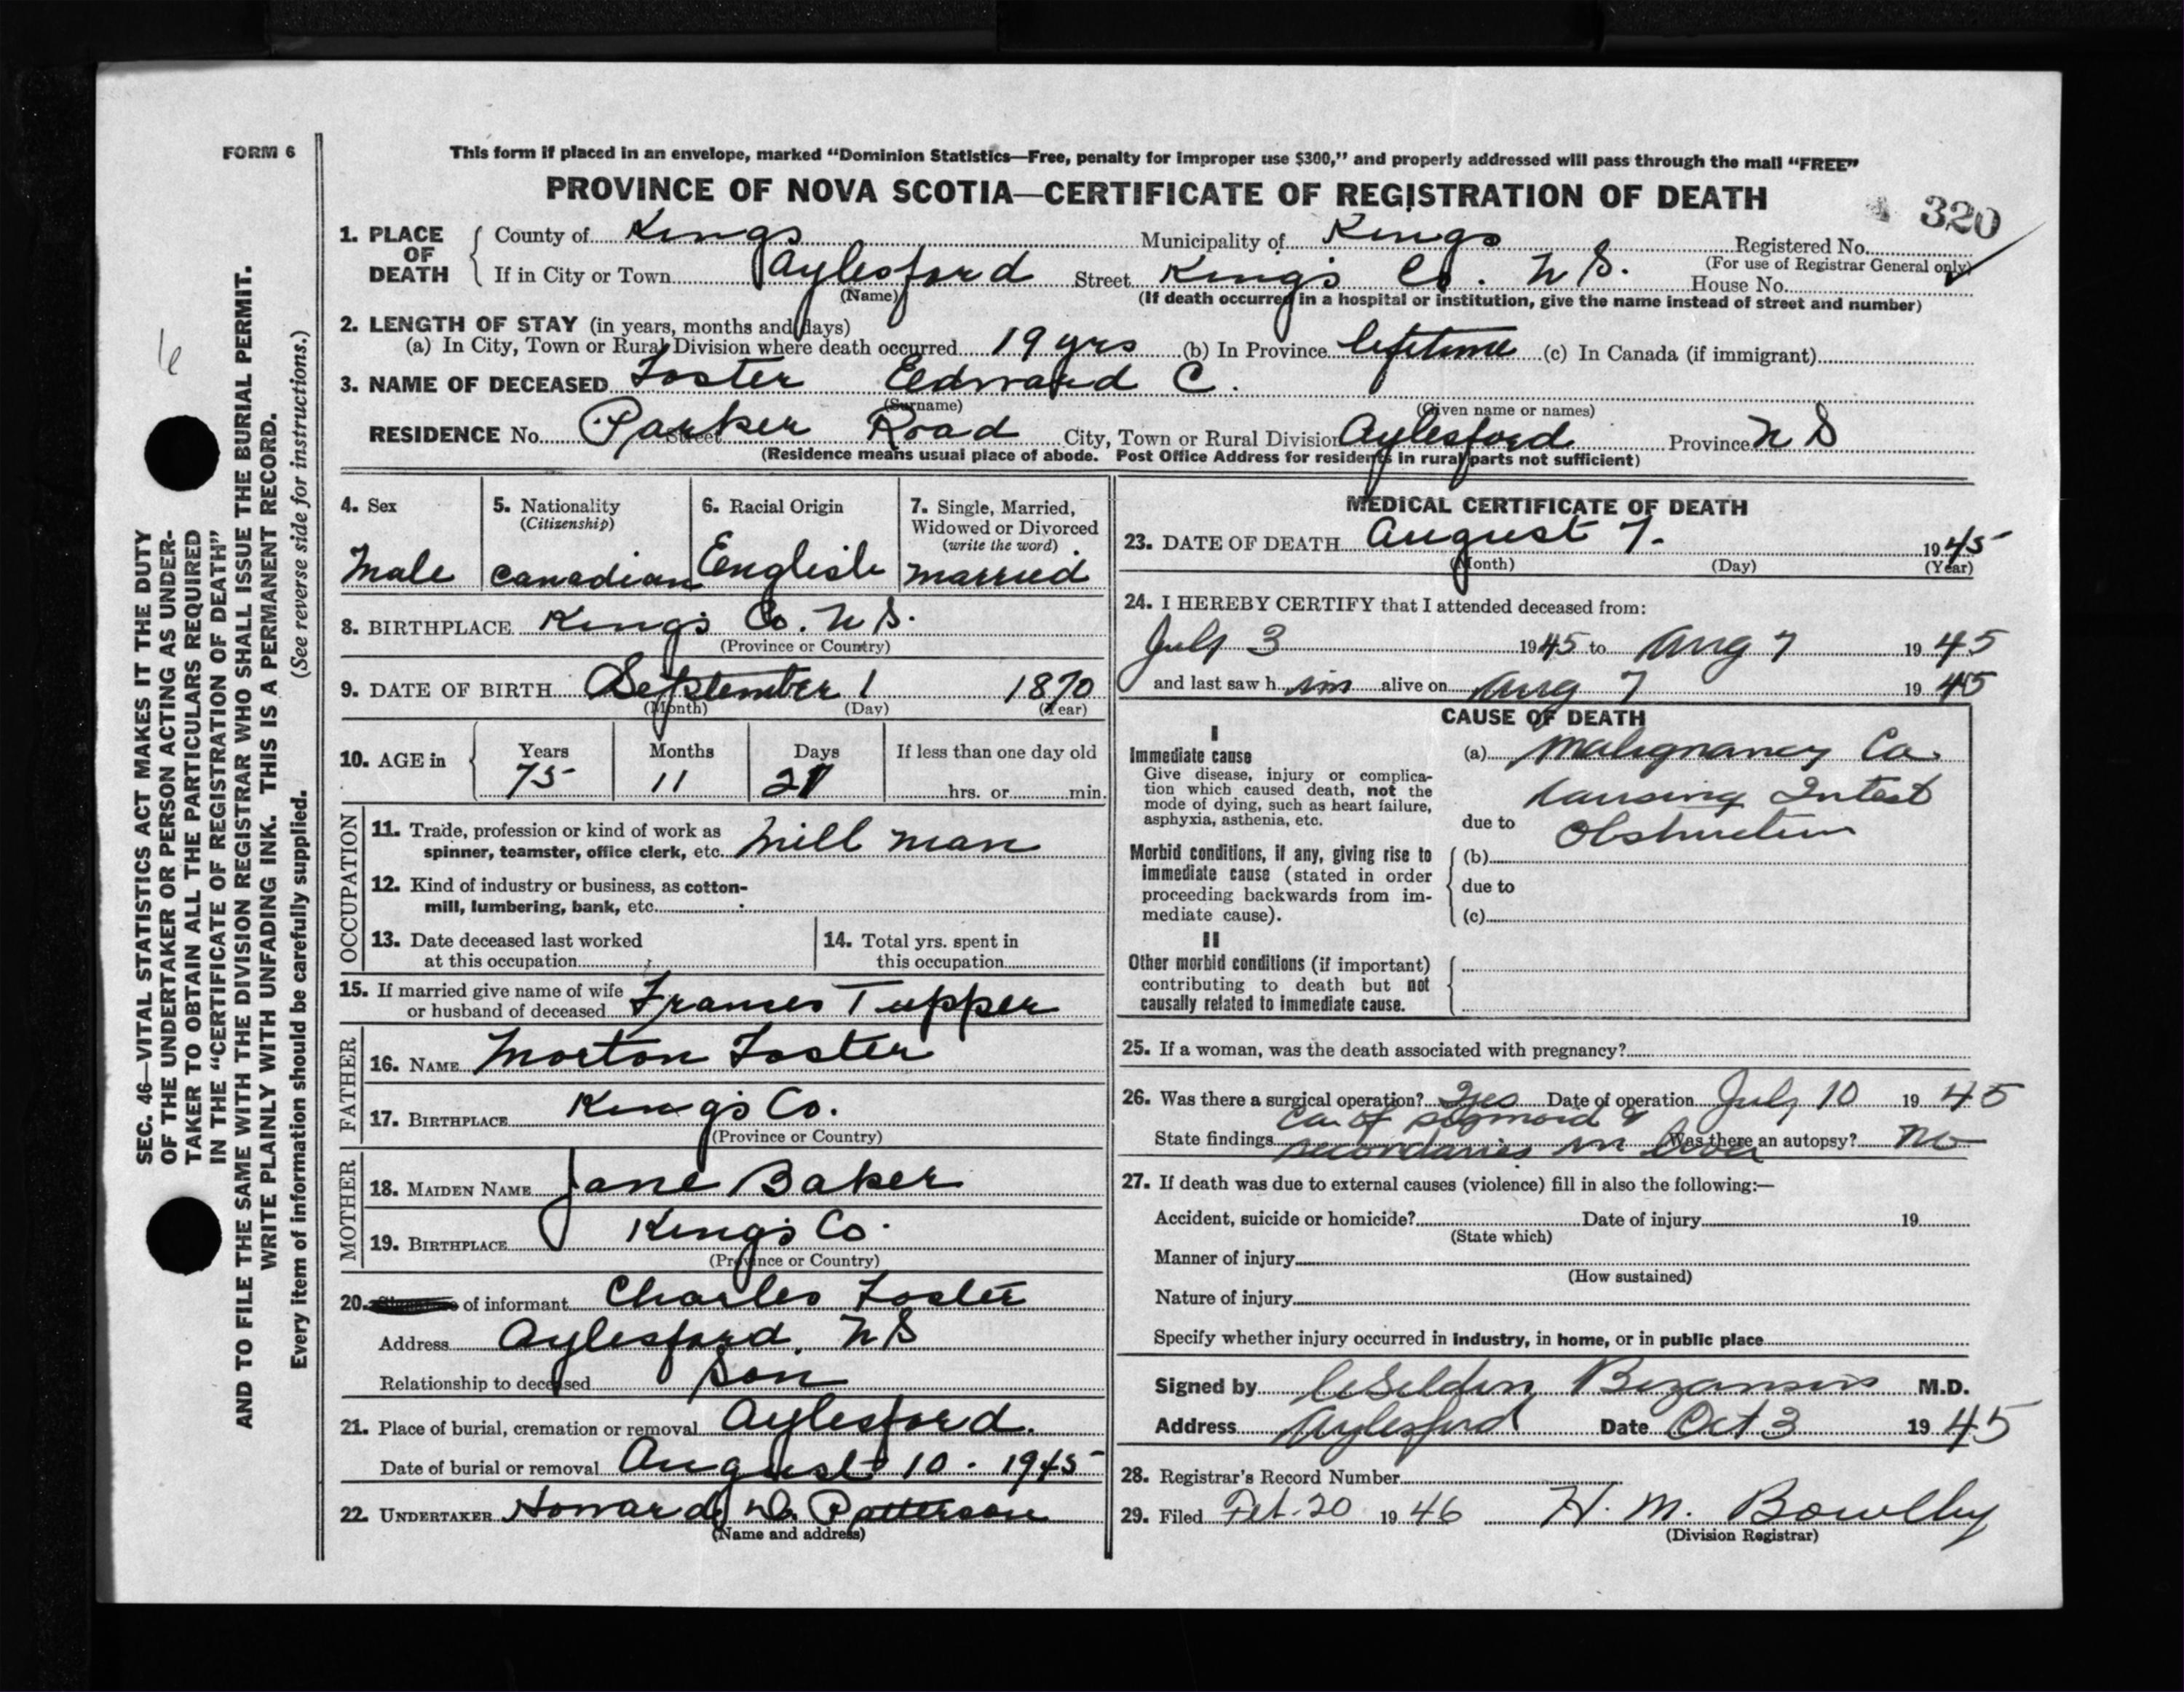 FORM 6
This form if placed in an envelope, marked “Dominion Statistics—Free, penalty for improper use $300,” and properly addressed will pass through the mail “FREE”
PROVINCE OF NOVA SCOTIA—CERTIFICATE OF REGISTRATION OF DEATH
320
1. PLACE OF DEATH
County of Kings Municipality of Kings Registered No.
(For use of Registrar General only)
If in City or Town Aylesford Street King's Co. N S. House No.
(Name) (If death occurred in a hospital or institution, give the name instead of street and number)
2. LENGTH OF STAY (in years, months and days)
(a) In City, Town or Rural Division where death occurred 19 yrs (b) In Province lifetime (c) In Canada (if immigrant)
3. NAME OF DECEASED Foster Edward C.
(Surname) (Given name or names)
RESIDENCE No. Parker Road City, Town or Rural Division Aylesford Province N S
Street
(Residence means usual place of abode. Post Office Address for residents in rural parts not sufficient)
4. Sex
Male
5. Nationality
(Citizenship)
Canadian
6. Racial Origin
English
7. Single, Married,
Widowed or Divorced
(write the word)
married
8. BIRTHPLACE King's Co. N S.
(Province or Country)
9. DATE OF BIRTH September 1 1870
(Month) (Day) (Year)
10. AGE in Years Months Days If less than one day old
75 11 21 hrs. or min.
OCCUPATION
11. Trade, profession or kind of work as
spinner, teamster, office clerk, etc. Mill man
12. Kind of industry or business, as cotton-
mill, lumbering, bank, etc.
13. Date deceased last worked
at this occupation
14. Total yrs. spent in
this occupation
15. If married give name of wife
or husband of deceased Frances Tupper
FATHER
16. NAME Morton Foster
17. BIRTHPLACE King's Co.
(Province or Country)
MOTHER
18. MAIDEN NAME Jane Baker
19. BIRTHPLACE King's Co.
(Province or Country)
20. of informant Charles Foster
Address Aylesford, N S
Relationship to deceased Son
21. Place of burial, cremation or removal Aylesford.
Date of burial or removal August 10. 1945
22. UNDERTAKER Howard D. Patterson
(Name and address)
MEDICAL CERTIFICATE OF DEATH
23. DATE OF DEATH August 7. 1945
(Month) (Day) (Year)
24. I HEREBY CERTIFY that I attended deceased from:
July 3 1945 to Aug 7 1945
and last saw h im alive on Aug 7 1945
CAUSE OF DEATH
I
Immediate cause
Give disease, injury or complica-
tion which caused death, not the
mode of dying, such as heart failure,
asphyxia, asthenia, etc.
(a) Malignancy Ca.
causing Intest
due to Obstruction
Morbid conditions, if any, giving rise to
immediate cause (stated in order
proceeding backwards from im-
mediate cause).
(b)
due to
(c)
II
Other morbid conditions (if important)
contributing to death but not
causally related to immediate cause.
25. If a woman, was the death associated with pregnancy?
26. Was there a surgical operation? Yes Date of operation July 10 1945
Ca. of sigmoid &
State findings secondaries in liver Was there an autopsy? No
27. If death was due to external causes (violence) fill in also the following:—
Accident, suicide or homicide? Date of injury 19
(State which)
Manner of injury
(How sustained)
Nature of injury
Specify whether injury occurred in industry, in home, or in public place
Signed by Selden Bezanson M.D.
Address Aylesford Date Oct 3 1945
28. Registrar's Record Number
29. Filed Feb. 20 1946 H. M. Bowlby
(Division Registrar)
SEC. 46—VITAL STATISTICS ACT MAKES IT THE DUTY
OF THE UNDERTAKER OR PERSON ACTING AS UNDER-
TAKER TO OBTAIN ALL THE PARTICULARS REQUIRED
IN THE “CERTIFICATE OF REGISTRATION OF DEATH”
AND TO FILE THE SAME WITH THE DIVISION REGISTRAR WHO SHALL ISSUE THE BURIAL PERMIT.
WRITE PLAINLY WITH UNFADING INK. THIS IS A PERMANENT RECORD.
Every item of information should be carefully supplied. (See reverse side for instructions.)